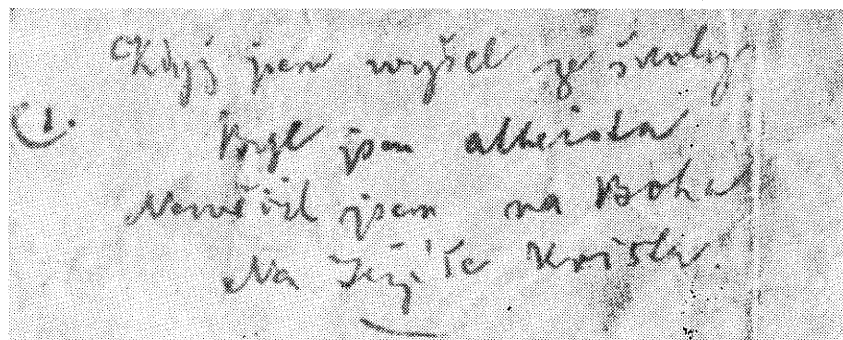 Když jsem vyšel ze školy
1.
Byl jsem atheista
Nevěřil jsem na Boha
Na Ježíše Krista.